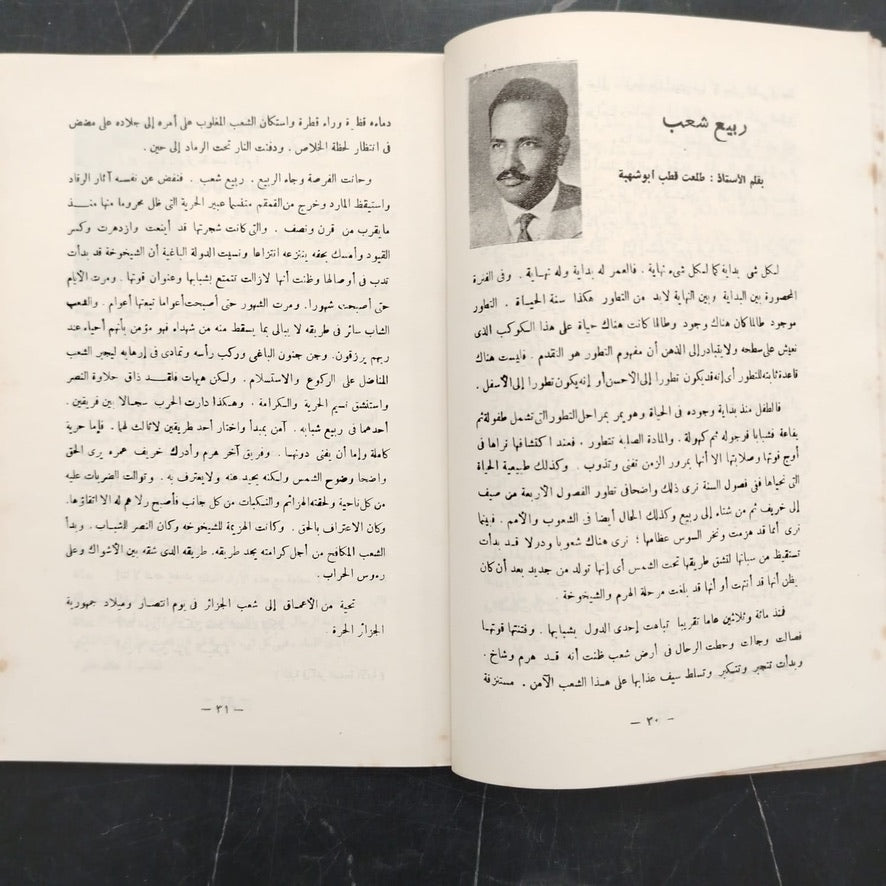 ربيع شعب
بقلم الأستاذ : طلعت قطب أبو شهبة
لكل شئ بداية كما لكل شىء نهاية . فالعمر له بداية وله نهـاية . وفى الفترة
المحصورة بين البداية وبين النهاية لابد من التطور هكذا سنة الحيـاة . التطور
موجود طالما كان هناك وجود وطالما كانت هناك حياة على هـذا الكوكب الذى
نعيش على سطحه ولا يتبادر إلى الذهن أن مفهوم التطور هو التقدم . فليست هناك
قاعدة ثابته للتطور أى إنه قد يكون تطورا إلى الأحسن أو إنه يكون تطورا إلى الأسفل .
فالطفل منذ بداية وجوده فى الحياة وهو يمر بمراحل التطور التى تشمل طفولة ثم
يفاعة فشبابا فرجوله ثم كهولة . والمادة الصلبه تتطور . فعند اكتشافها تراها فى
أوج قوتها وصلابتها الا أنها بمرور الزمن تفنى وتذوب . وكذلك طبيعية الحياة
التى نحياها ففى فصول السنة نرى ذلك واضحا فى تطور الفصول الأربعة من صيف
إلى خريف ثم من شتاء إلى ربيع وكذلك الحال أيضا فى الشعوب والأمم . فبينما
نرى أمما قد هزمت ونخر السوس عظامها ؛ نرى هناك شعوبا ودولا قـد بدأت
تستيقظ من سباتها لتشق طريقها تحت الشمس أى إنها تولد من جديد بعد أن كان
يظن أنها قد أنتهت أو أنها قد بلغت مرحلة الهرم والشيخوخة .
فمنذ مائة وثلاثين عاما تقريبا تباهت إحدى الدول بشبابها . وفتنتها قوتهـا
فصالت وجالت وحطت الرحال فى أرض شعب ظنت أنه قـد هرم وشاخ .
وبدأت تتجبر وتتكبر وتسلط سيف عذابها على هـذا الشعب الآمن . مستنزفة
— ٣٠ —
دماءه قطرة وراء قطرة واستكان الشعب المغلوب على أمره إلى جلاده على مضض
فى انتظار لحظة الخلاص . ودفنت النار تحت الرماد إلى حين .
وحانت الفرصة وجاء الربيع . ربيع شعب . فنفض عن نفسه آثار الرقاد
واستيقظ المارد وخرج من القمقم متنسما عبير الحرية التى ظل محروما منها منـذ
ما يقرب من قرن ونصف . والتى كانت شجرتها قد أينعت وازدهرت وكسر
القيود وأمسك بحقه ينتزعه انتزاعا ونسيت الدولة الباغية أن الشيخوخة قد بدأت
تدب فى أوصالها وظنت أنها لا زالت تتمتع بشبابها وعنوان قوتها . ومرت الأيام
حتى أصبحت شهورا . ومرت الشهور حتى أصبحت أعواما تبعتها أعوام . والشعب
الشاب سائر فى طريقه لا يبالى بما يسقط منه من شهداء فهو مؤمن بأنهم أحياء عند
ربهم يرزقون . وجن جنون الباغى وركب رأسه وتمادى فى إرهابه ليجبر الشعب
المناضل على الركوع والاستسلام . ولكن هيهات فلقـد ذاق حلاوة النصر
واستنشق نسيم الحرية والكرامة . وهكذا دارت الحرب سجالا بين فريقين .
أحدهما فى ربيع شبابه . آمن بمبدأ واختار أحد طريقين لا ثالث لهما . فإما حرية
كاملة وإما أن يفنى دونهـا . وفريق آخر هرم وأدرك خريف عمره يرى الحق
واضحا وضوح الشمس ولكنه يحيد عنه ولا يعترف به . وتوالت الضربات عليه
من كل ناحية ولحقته الهزائم والنكبات من كل جانب فأصبح ولا هم له الا اتقاؤها .
وكان الاعتراف بالحق . وكانت الهزيمة للشيخوخه وكان النصر للشبـاب . وبدأ
الشعب المكافح من أجل كرامته يحد طريقه . طريقه الذى شقه بين الأشواك وعلى
رءوس الحراب .
تحية من الأعماق إلى شعب الجزائر فى يوم انتصار وميلاد جمهورية
الجزائر الحرة .
— ٣١ —